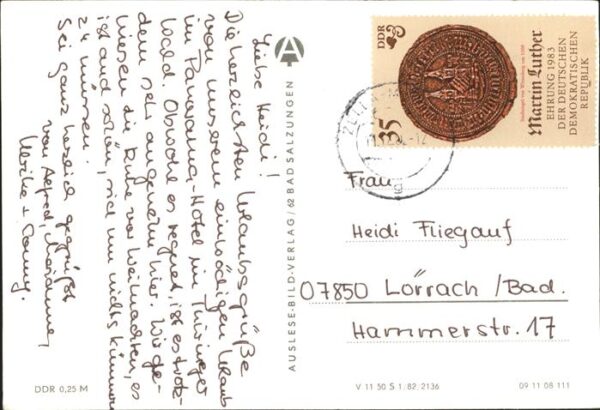 Liebe Heidi!
Die herzlichsten Urlaubsgrüße
von unserem eintägigen Urlaub
im Panorama-Hotel im Thüringer
Wald. Obwohl es regnet ist es trotz-
dem sehr angenehm hier. Wir ge-
niesen die Ruhe vor Weihnachten, es
ist auch schön, sich um nichts kümmern
zu müssen.
Sei ganz herzlich gegrüßt
von Alfred, Marianne,
Ulrike + Conny.
DDR 0,25 M
AUSLESE-BILD-VERLAG/62 BAD SALZUNGEN
A
DDR
35
Stadtsiegel von Wittenberg
Martin Luther
EHRUNG 1983
DER DEUTSCHEN
DEMOKRATISCHEN
REPUBLIK
ZELLA-M
Frau
Heidi Fliegauf
07850 Lörrach/Bad.
Hammerstr. 17
V 11 50 S 1. 82. 2136
09 11 08 111